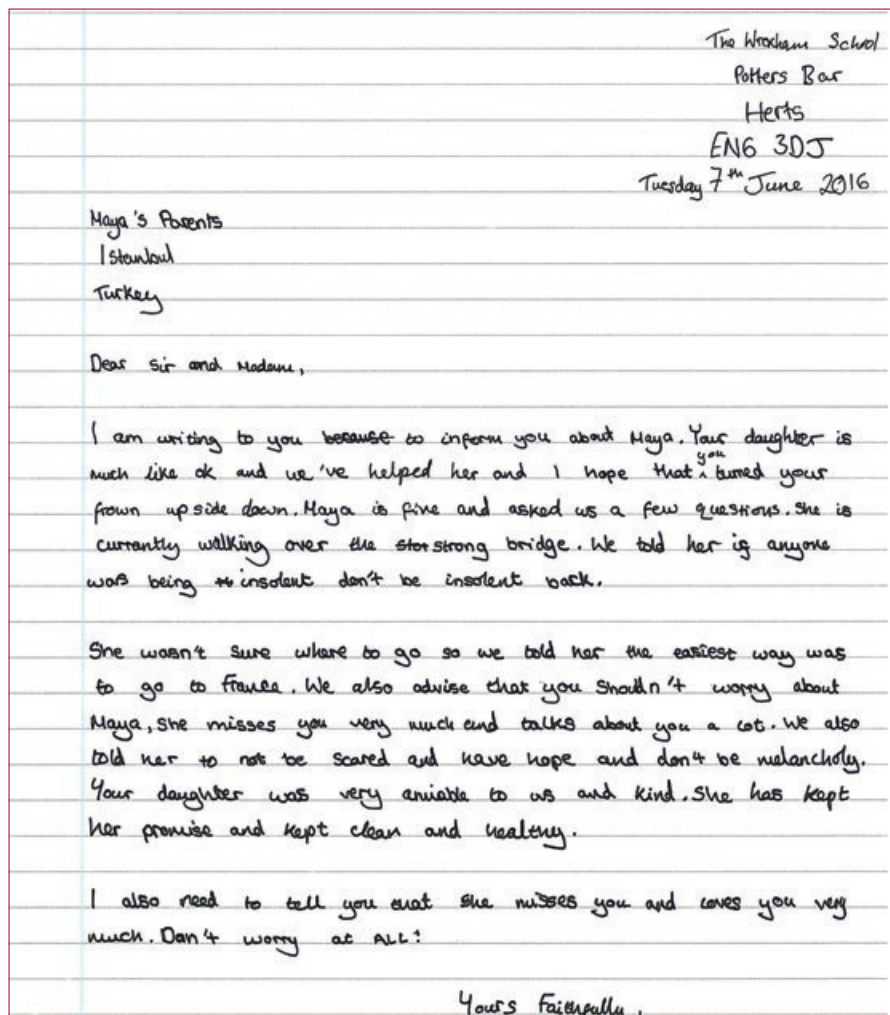 The Wroxham School
Potters Bar
Herts
EN6 3DJ
Tuesday 7th June 2016
Maya's Parents
Istanbul
Turkey
Dear Sir and Madame,
I am writing to you because to inform you about Maya. Your daughter is
much like ok and we've helped her and I hope that you turned your
frown upside down. Maya is fine and asked us a few questions. She is
currently walking over the stor strong bridge. We told her if anyone
was being insolent don't be insolent back.
She wasn't sure where to go so we told her the easiest way was
to go to France. We also advise that you shouldn't worry about
Maya, she misses you very much and talks about you a lot. We also
told her to not be scared and have hope and don't be melancholy.
Your daughter was very amiable to us and kind. She has kept
her promise and kept clean and healthy.
I also need to tell you that she misses you and loves you very
much. Don't worry at ALL!
Yours Faithfully,